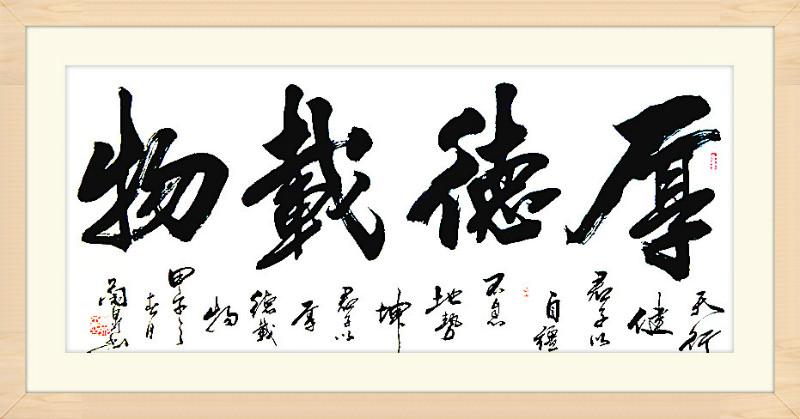 厚德載物
天行
健
君子以
自彊
不息
地勢
坤
君子以
厚
德載
物
甲午之
春月